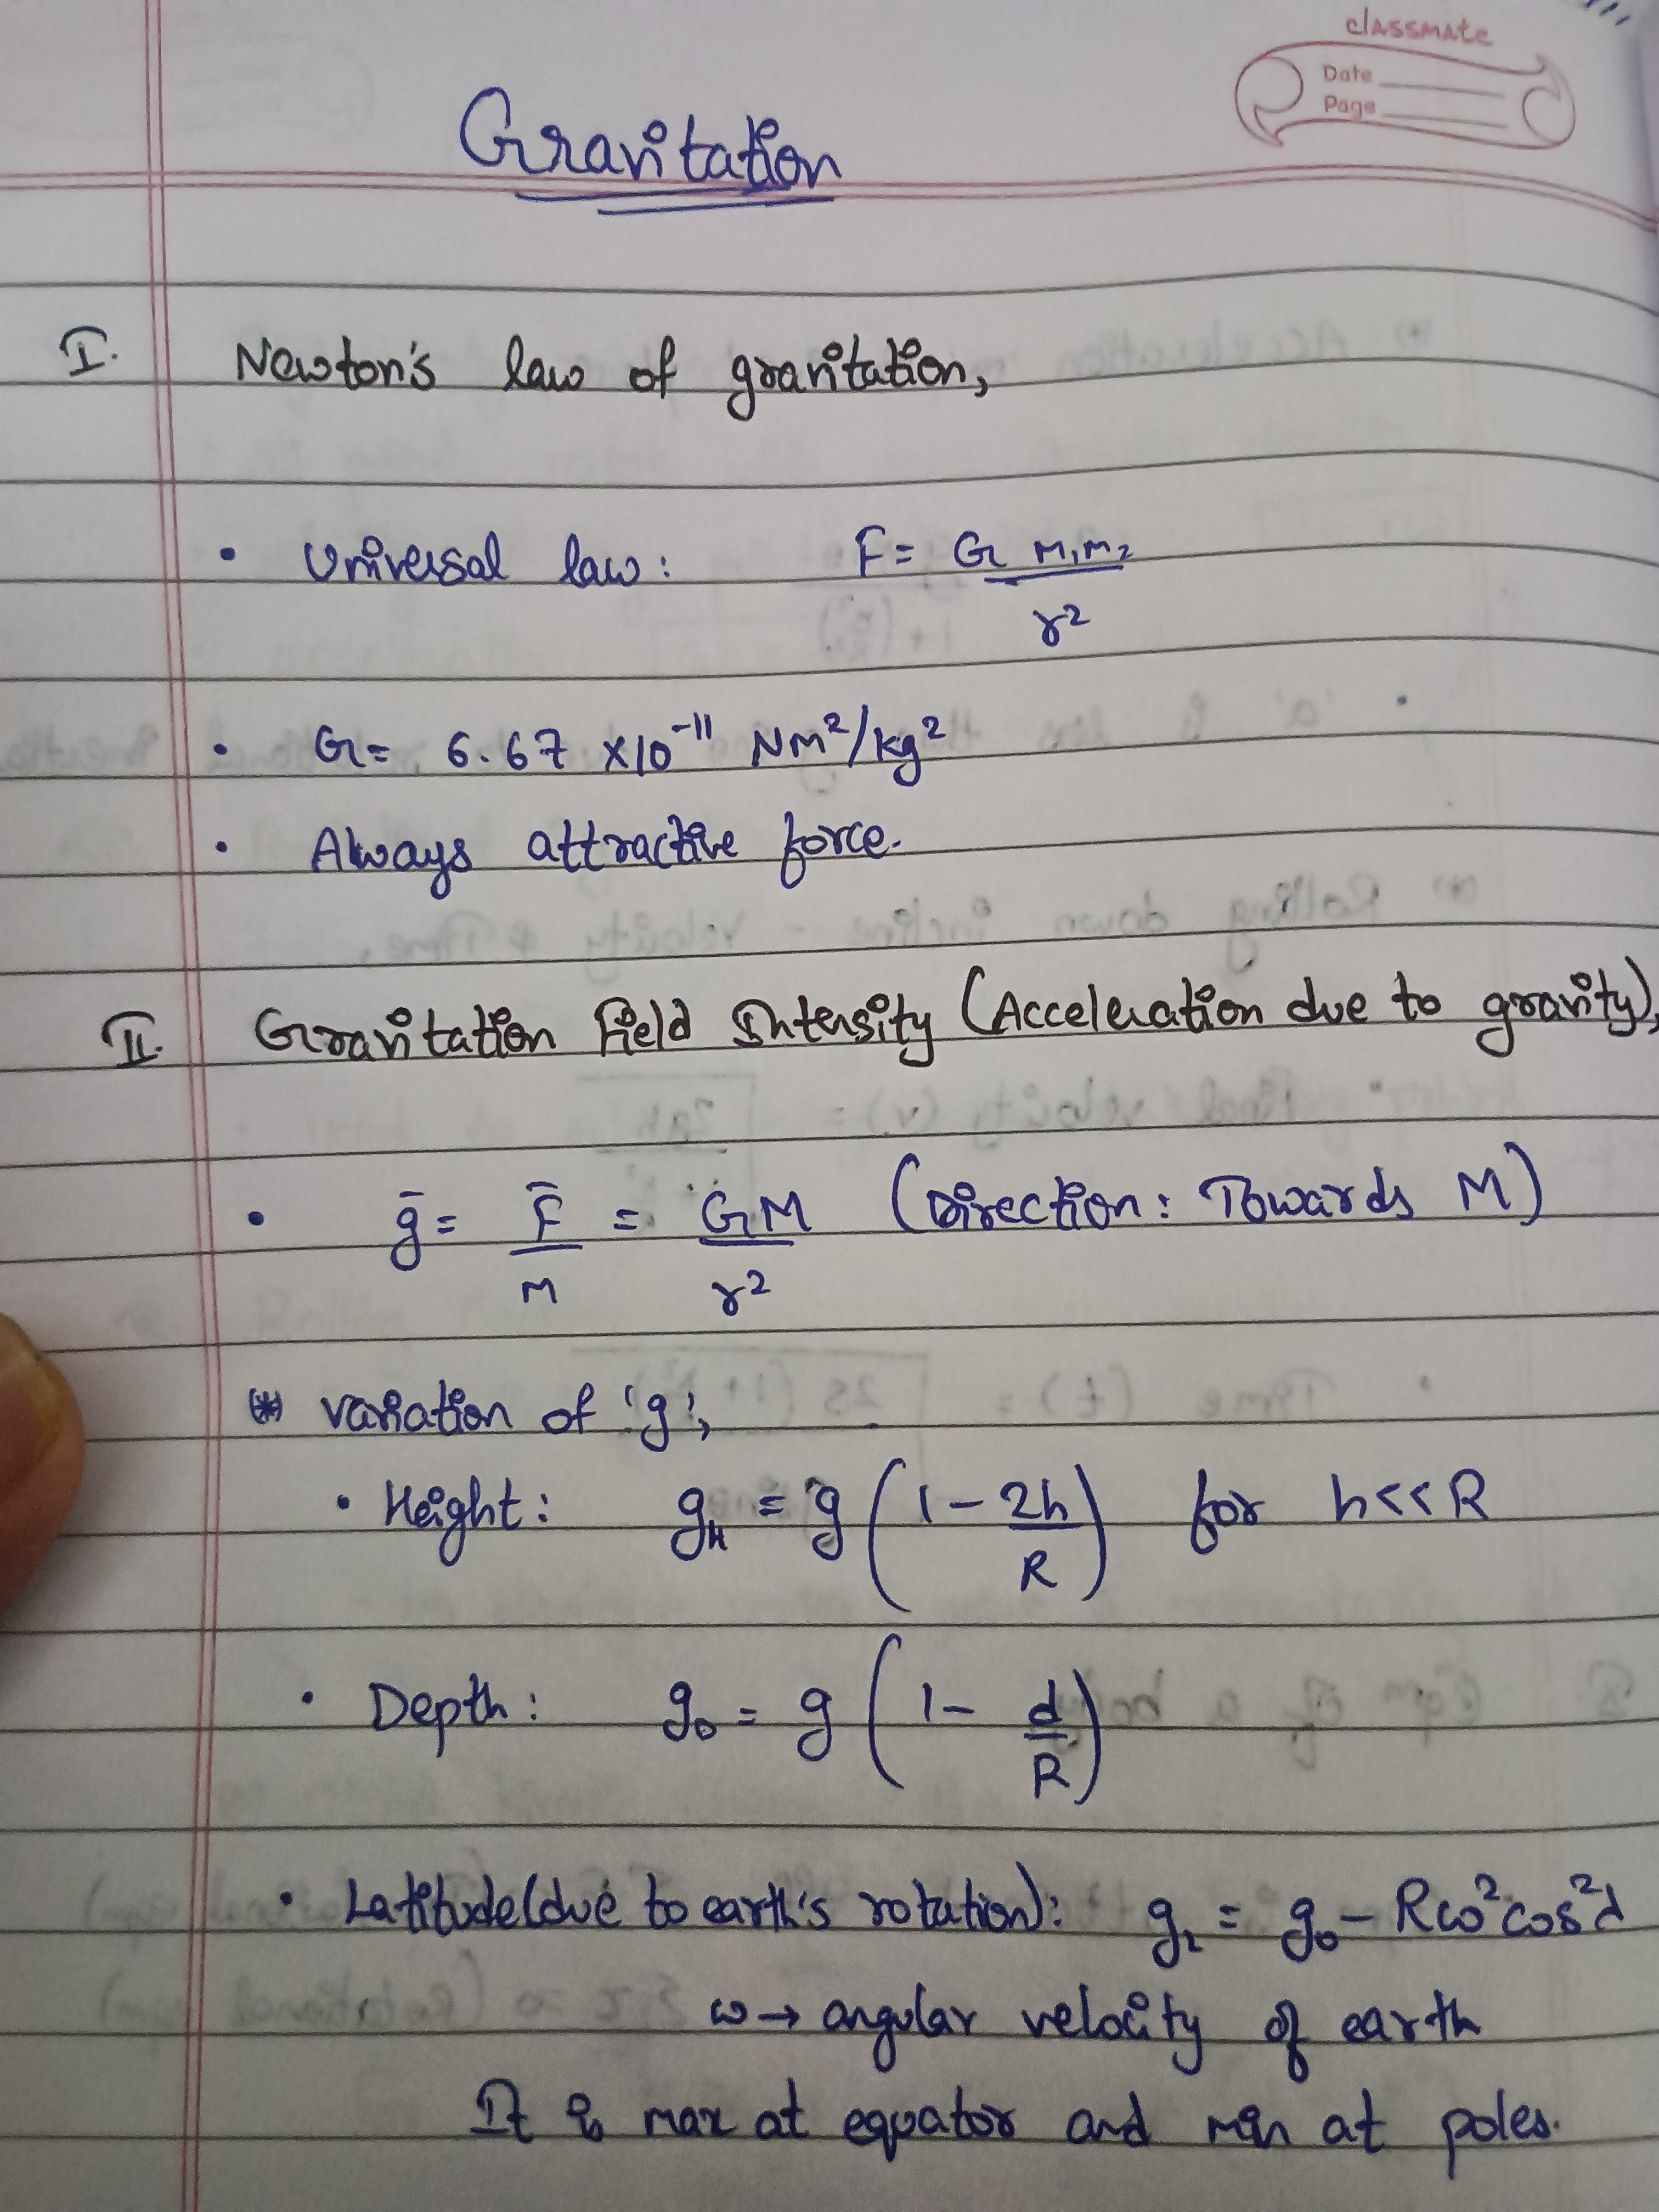 classmate
Date
Page
Gravitation
I. Newton's law of gravitation,
• Universal law: F = G m₁m₂
r²
• G = 6.67 ×10⁻¹¹ Nm²/kg²
• Always attractive force.
II. Gravitation Field Intensity (Acceleration due to gravity),
• ḡ = F̄/m = GM/r² (Direction: Towards M)
(*) variation of 'g',
• Height: g_H = g(1 - 2h/R) for h<<R
• Depth: g_D = g(1 - d/R)
• Latitude(due to earth's rotation): g_L = g₀ - Rω²cos²λ
ω → angular velocity of earth
It is max at equator and min at poles.